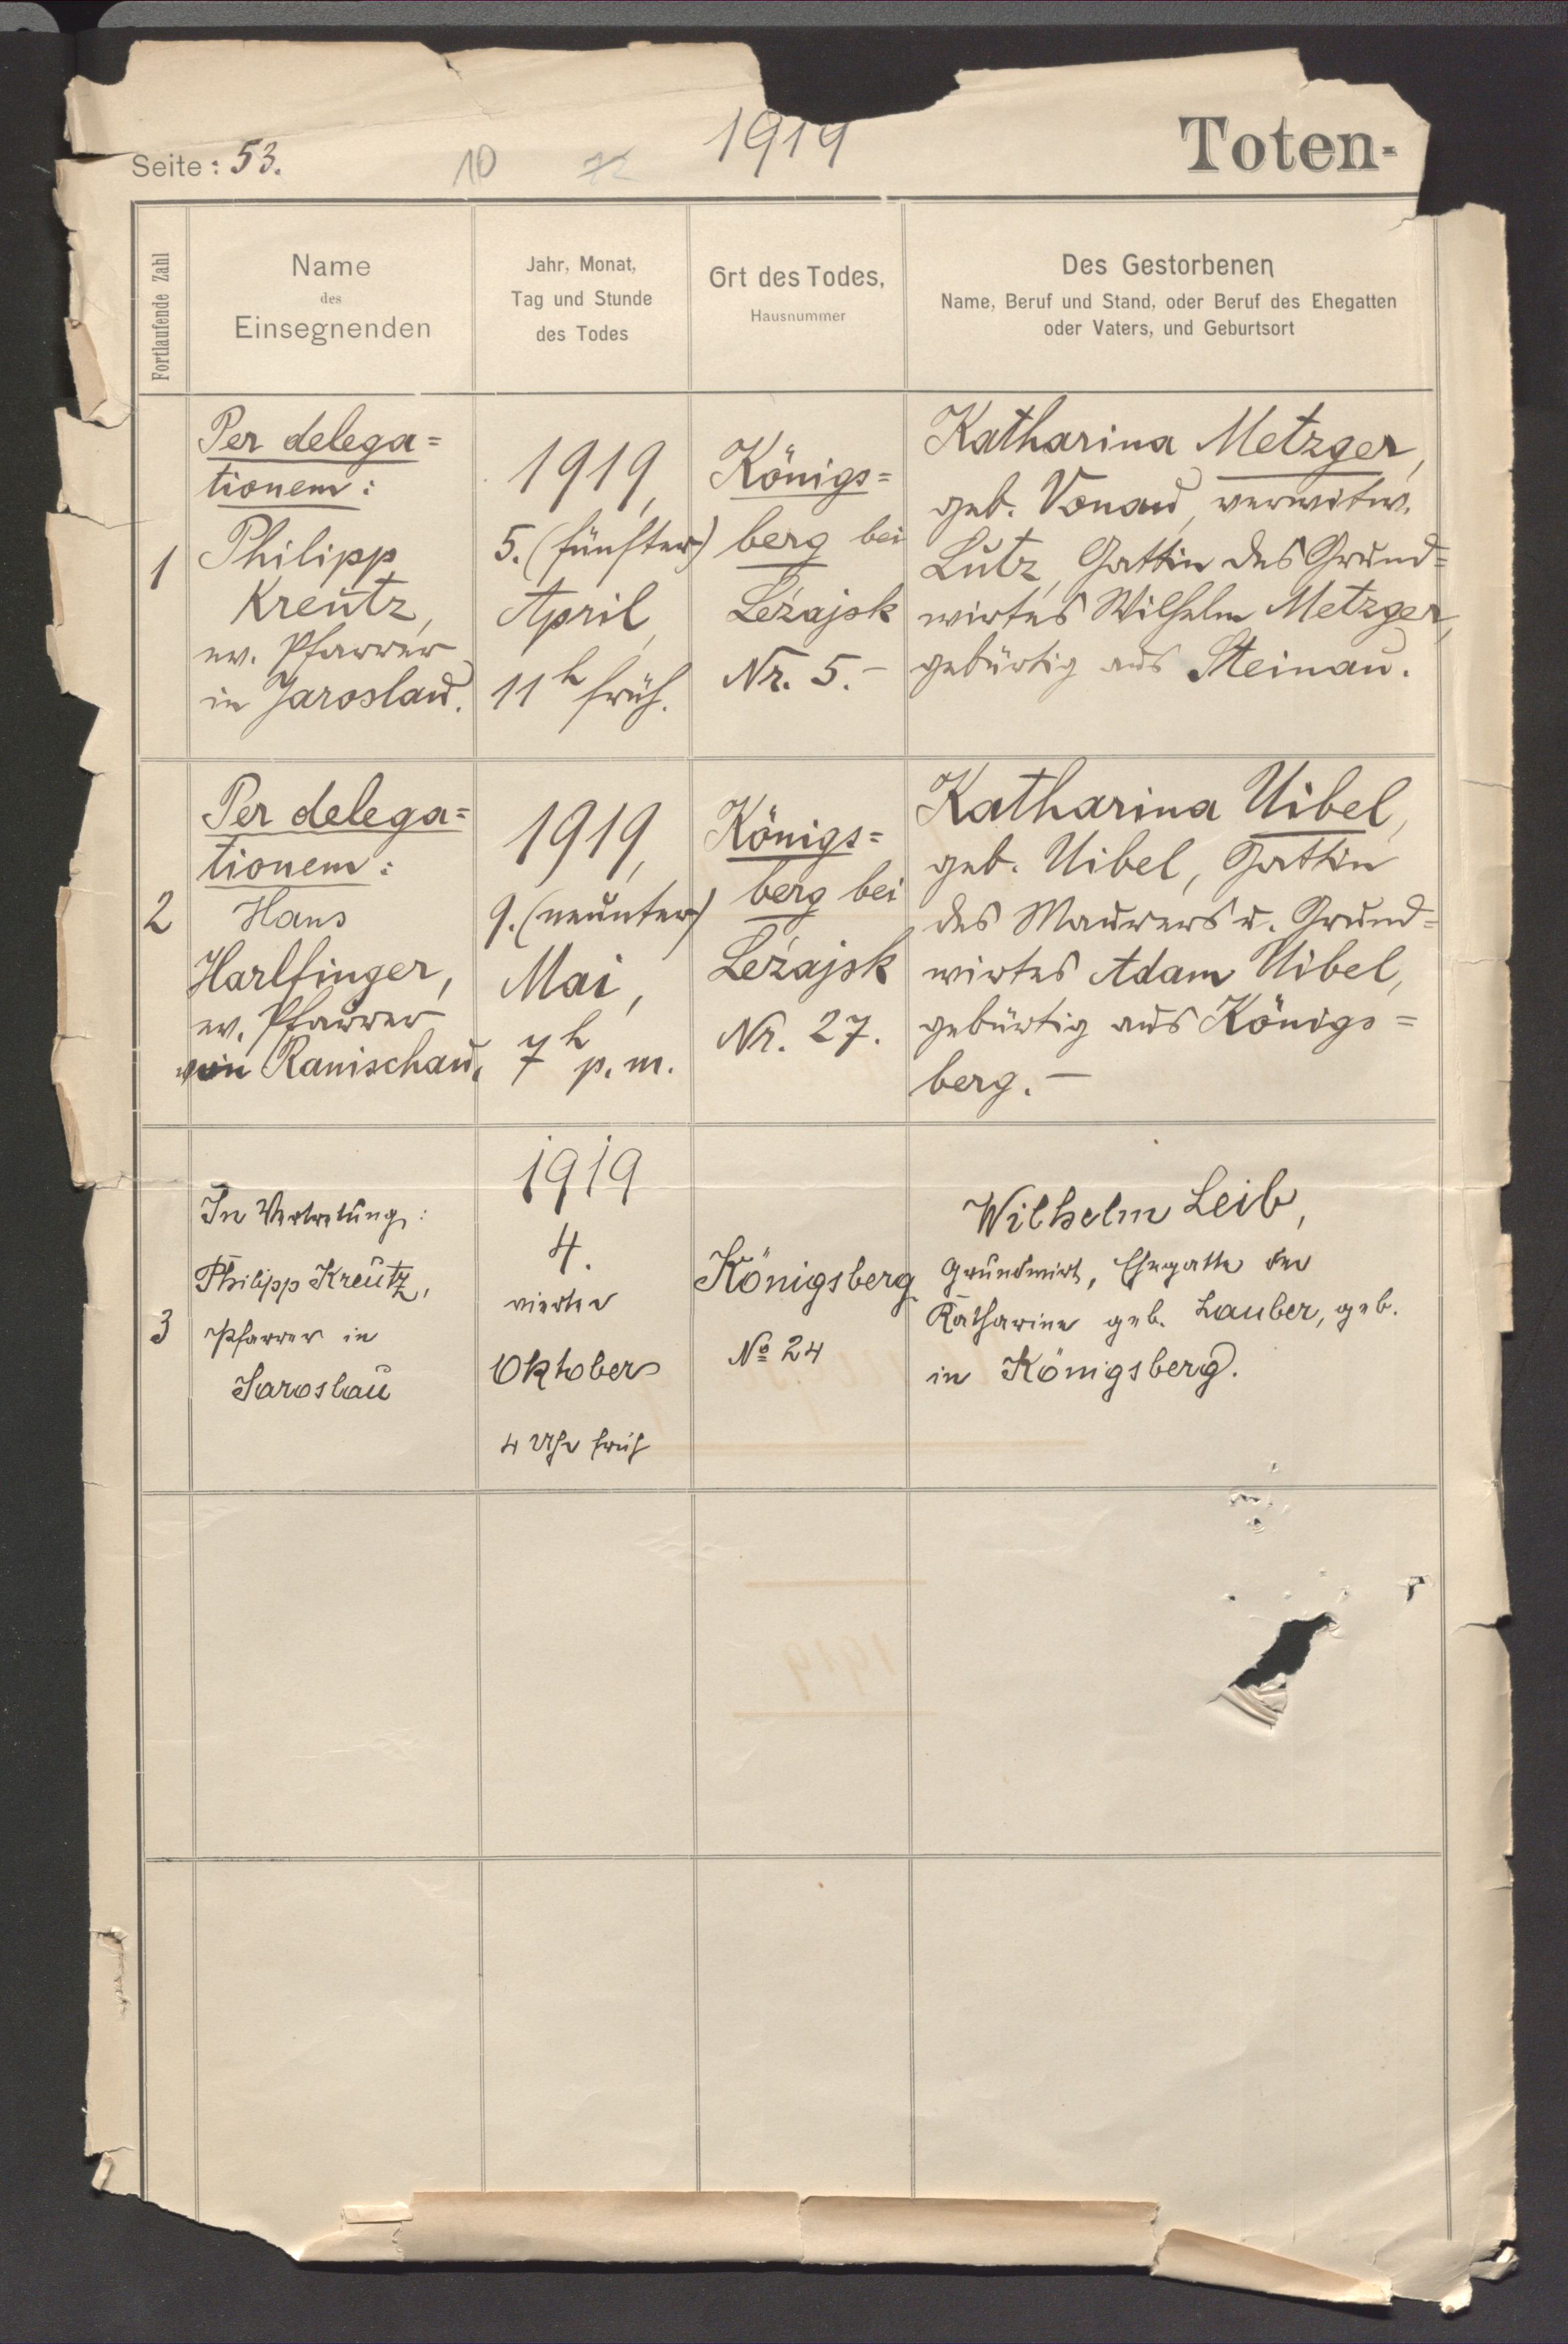 Seite: 53.
10
1919
Toten-
Fortlaufende Zahl
Name
des
Einsegnenden
Jahr, Monat,
Tag und Stunde
des Todes
Ort des Todes,
Hausnummer
Des Gestorbenen
Name, Beruf und Stand, oder Beruf des Ehegatten
oder Vaters, und Geburtsort
1
Per delega=
tionem:
Philipp
Kreutz,
ev. Pfarrer
in Jaroslau.
1919,
5. (fünfter)
April,
11h früh.
Königs=
berg bei
Leżajsk
Nr. 5.-
Katharina Metzger,
geb. Vonau, verwitw.
Lutz, Gattin des Grund=
wirtes Wilhelm Metzger,
gebürtig aus Steinau.
2
Per delega=
tionem:
Hans
Harlfinger,
ev. Pfarrer
in Ranischau.
1919,
9. (neunter)
Mai,
7h p. m.
Königs=
berg bei
Leżajsk
Nr. 27.
Katharina Uibel,
geb. Uibel, Gattin
des Maurers u. Grund=
wirtes Adam Uibel,
gebürtig aus Königs=
berg.-
3
In Vertretung:
Philipp Kreutz,
Pfarrer in
Jaroslau
1919
4.
vierter
Oktober
4 Uhr früh
Königsberg
No 24
Wilhelm Leib,
Grundwirt, Ehegatte der
Katharina geb. Lauber, geb.
in Königsberg.